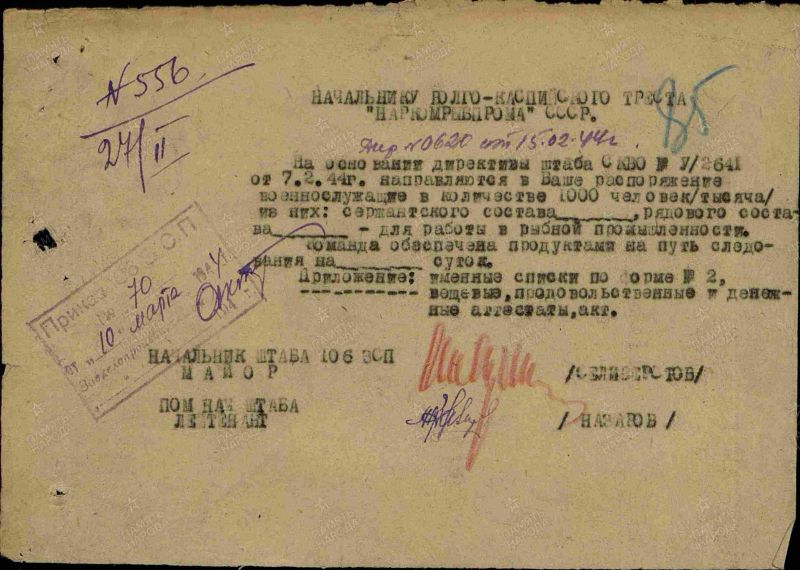 N 556
27/II
85
НАЧАЛЬНИКУ ВОЛГО-КАСПИЙСКОГО ТРЕСТА
"НАРКОМРЫБПРОМА" СССР.
Дир N 0620 от 15.02.44г.
На основании директивы штаба СКВО № У/2641
от 7.2.44г. направляются в Ваше распоряжение
военнослужащие в количестве 1000 человек/тысяча/
из них: сержантского состава_______,рядового соста-
ва_______ - для работы в рыбной промышленности.
Команда обеспечена продуктами на путь следо-
вания на_______ суток.
Приложение: именные списки по форме № 2,
вещевые,продовольственные и денеж-
ные аттестаты,акт.
Приказ
№ 70
от "10" марта 1944
НАЧАЛЬНИК ШТАБА 106 ЗСП
МАЙОР /СЕЛИВЕРСТОВ/
ПОМ НАЧ ШТАБА
ЛЕЙТЕНАНТ / НАЗАРОВ /